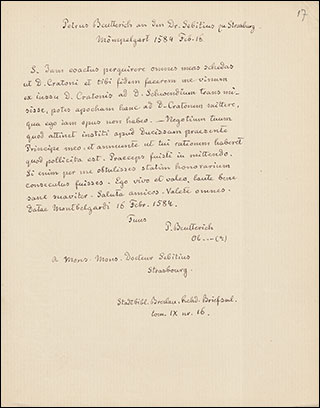 17
Petrus Beutterich an den Dr. Sebitius zu Strassburg.
Mömpelgart 1584 Feb. 16
S. Iam coactus perquirere omnes meas schedas
ut D. Cratoni et tibi fidem facerem me vinum
ex iussu D. Cratonis ad D. Schwendium trans mi-
sisse, potes apocham hanc ad D. Cratonem mittere,
qua ego iam opus non habeo. – Negotium tuum
quod attinet institi apud Ducissam praesente
Principe meo, et annuente ut tui rationem haberet
quod pollicita est. Praeceps fuisti in mittendo.
Si enim per me obtulisses statim honorarium
consecutus fuisses. Ego vivo et valeo, laute bene
sane suaviter. Saluta amicos. Valete omnes.
Datae Montbelgardi 16 Febr. 1584.
Tuus
P. Beutterich
A Mons. Mons. Docteur Sebitius
Strasbourg.
Stadtbibl. Breslau. Rehd. Briefsml.
tom. IX nr. 16.